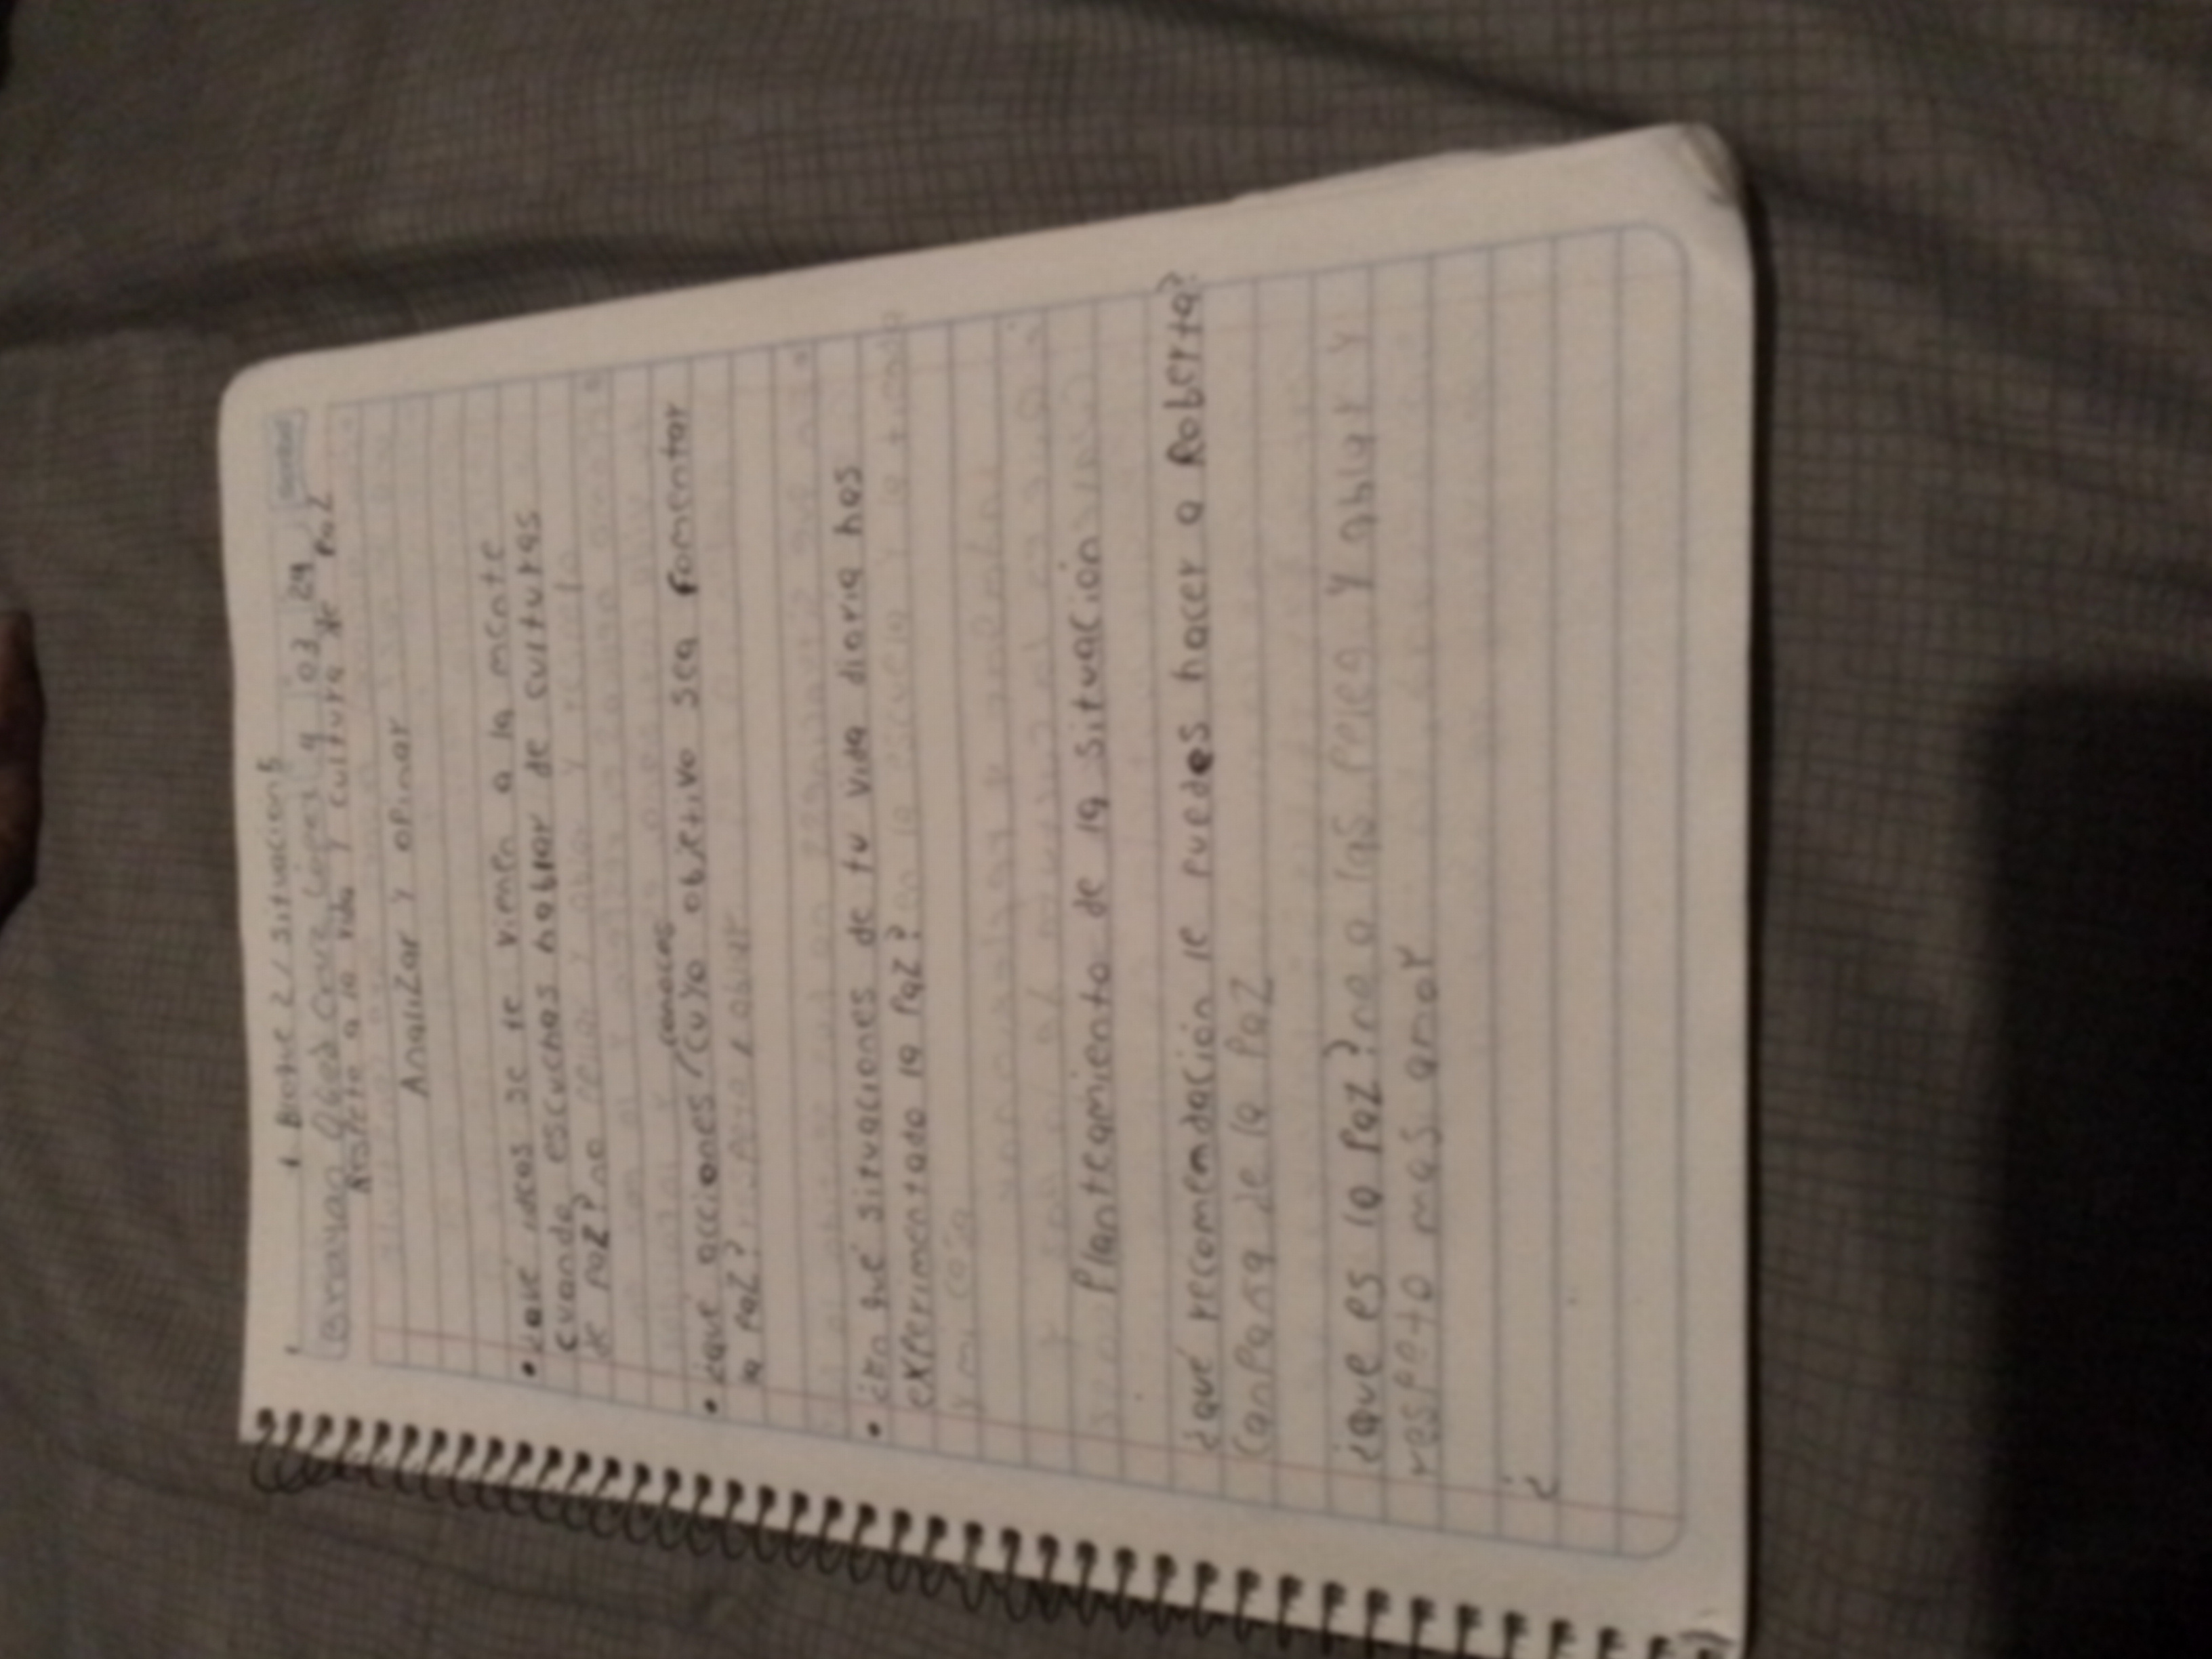 Bloque 2 / situacion 5
Brayan Obed Cruz López 9 03 29
Respeto a la vida y cultura de Paz
Analizar y opinar
• ¿Qué ideas se te vienen a la mente
cuando escuchas hablar de culturas
de paz? no peliar y ablar y
conoces
• ¿qué acciones / cuyo objetivo sea fomentar
la paz? ablar
• ¿En qué situaciones de tu vida diaria has
experimentado la paz? en la escuela y
y mi casa
Planteamiento de la situación
¿qué recomendación le puedes hacer a Roberta?
Canpana de la Paz
¿que es la paz? no a las pelea y ablar y
respeto mas amor
¿